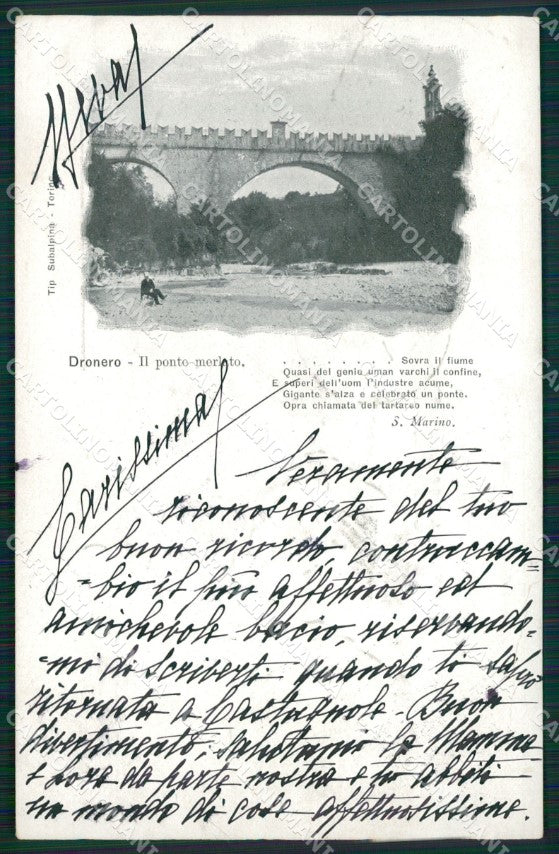 Tip Subalpina - Torino
Dronero - Il ponte merlato.
. . . . . . . . . Sovra il fiume
Quasi del genio uman varchi il confine,
E superi dell'uom l'industre acume,
Gigante s'alza e celebrato un ponte.
Opra chiamata del tartareo nume.
S. Marino.
Carissima
Veramente
riconoscente del tuo
buon ricordo, contraccam=
=bio il più affettuoso ed
amichevole bacio, riservando=
=mi di scriverti quando ti saprò
ritornata a Castagnole. Buon
divertimento, salutami la Mamma
e da parte nostra e tu abbiti
un mondo di cose affettuosissime.